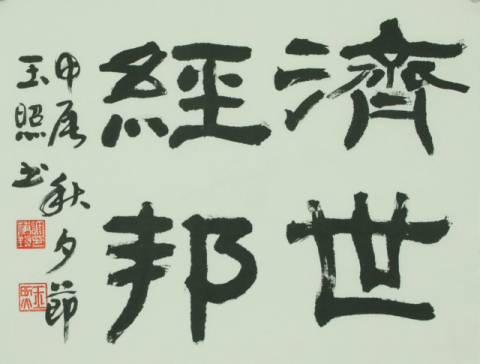 濟世
經邦
甲辰秋夕節
玉照书